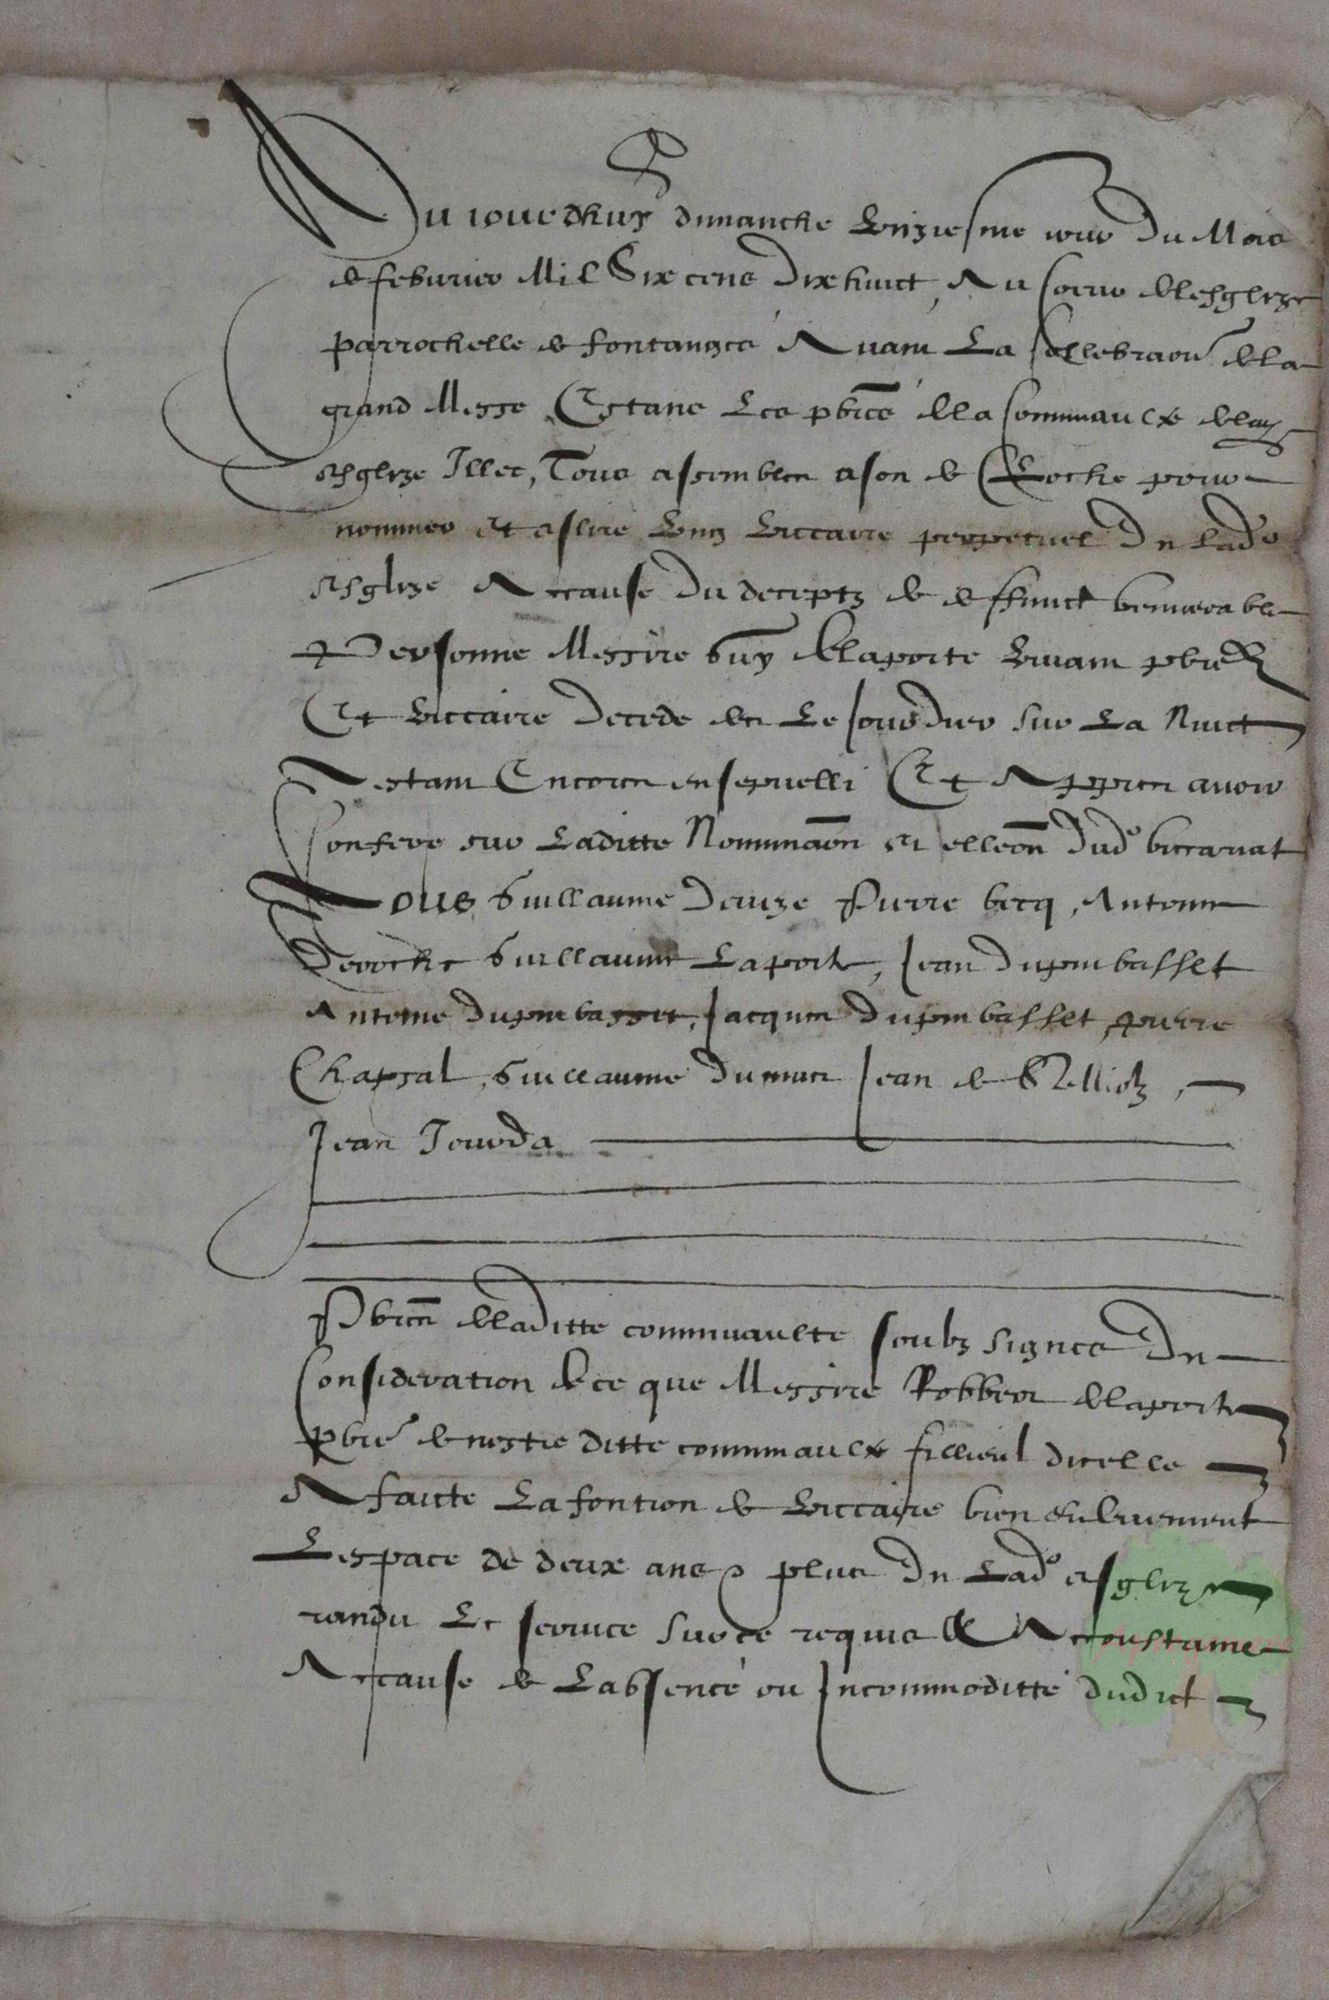 Du jourdhuy dimanche unziesme jour du Mois
de febvrier Mil Six cens dix huict, Au coeur de lesglize
parrochelle de fontanges Avant La sellebraon de la
grand Messe Estans Les pbres de la Communaulte de lad
esglize Illec, Tous assembles a son de Cloche pour
nommer et eslire Ung viccaire perpetuel En lad
esglize A cause du deceptz de deffunct venerable
Personne Messire Guy delaporte vivant pbre
Et viccaire decede des Le jourdier sur La Nuict
Nestant Encores ensepvelli Et Appres avoir
Confere sur Laditte Nominaon et elleon dud viccariat
Nous Guillaume deauze Pierre becq, Antoine
Deroche Guillaume Laporte, Jean dupinbasset
Antoine dupinbasset, Jacques dupinbasset, pierre
Chapsal, Guillaume dumas Jean de
Jean Jourda
Pbres de laditte communaulte soubz signes En
Consideration de ce que Messire Robbert delaporte
pbre de nostre ditte communaulte fillieul dicelle
A faicte La fontion de viccaire bien
Lespace de deux ans plus En Lad esglize
randu Le service sur ce requis & Accoustume
A cause de Labsence ou Incommoditte dudict